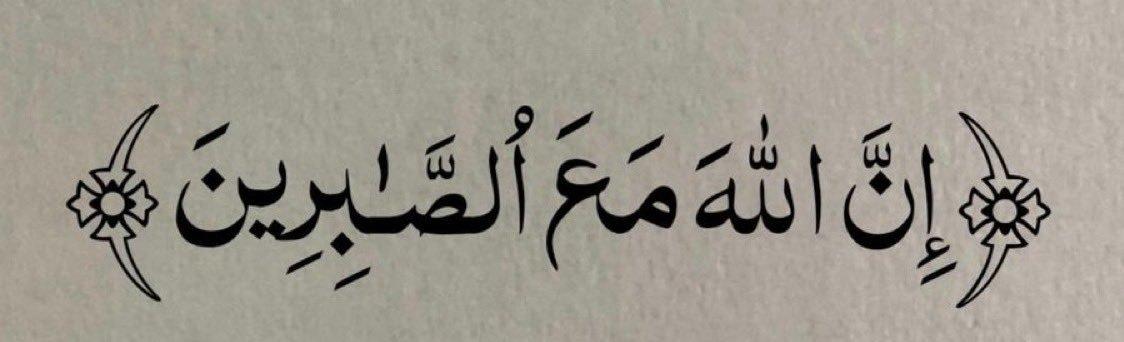 ﴿إِنَّ اللّٰهَ مَعَ اُلصَّـٰبِرِينَ﴾